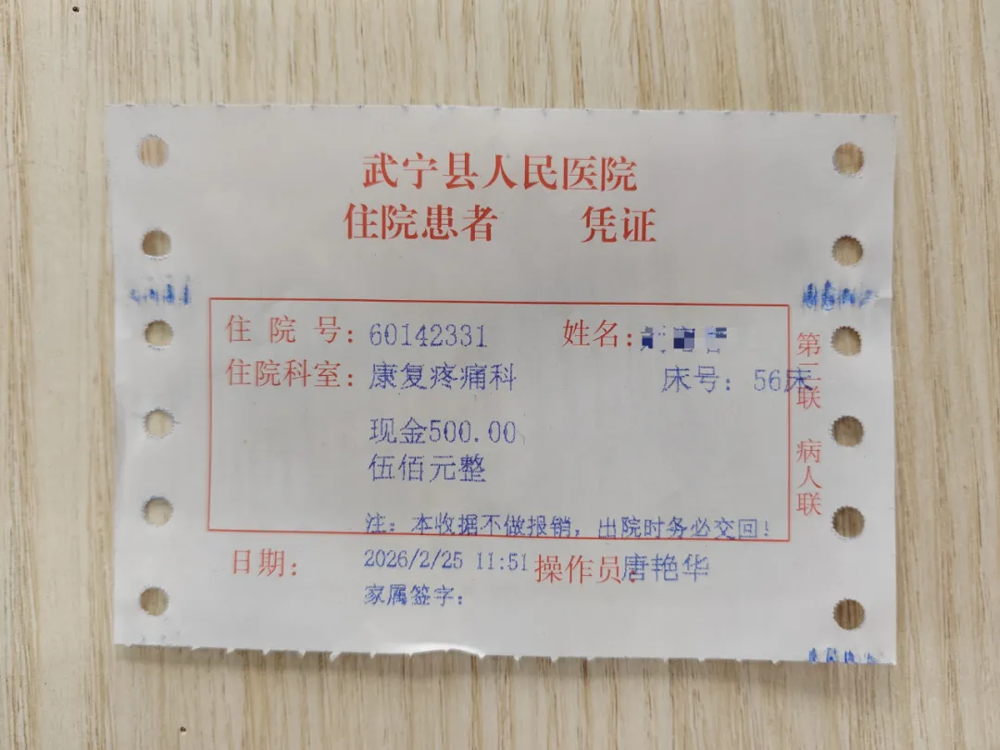 武宁县人民医院
住院患者 凭证
住院号：60142331 姓名：
住院科室：康复疼痛科 床号：56床
现金500.00
伍佰元整
注：本收据不做报销，出院时务必交回！
日期：2026/2/25 11:51 操作员：唐艳华
家属签字：
第二联 病人联